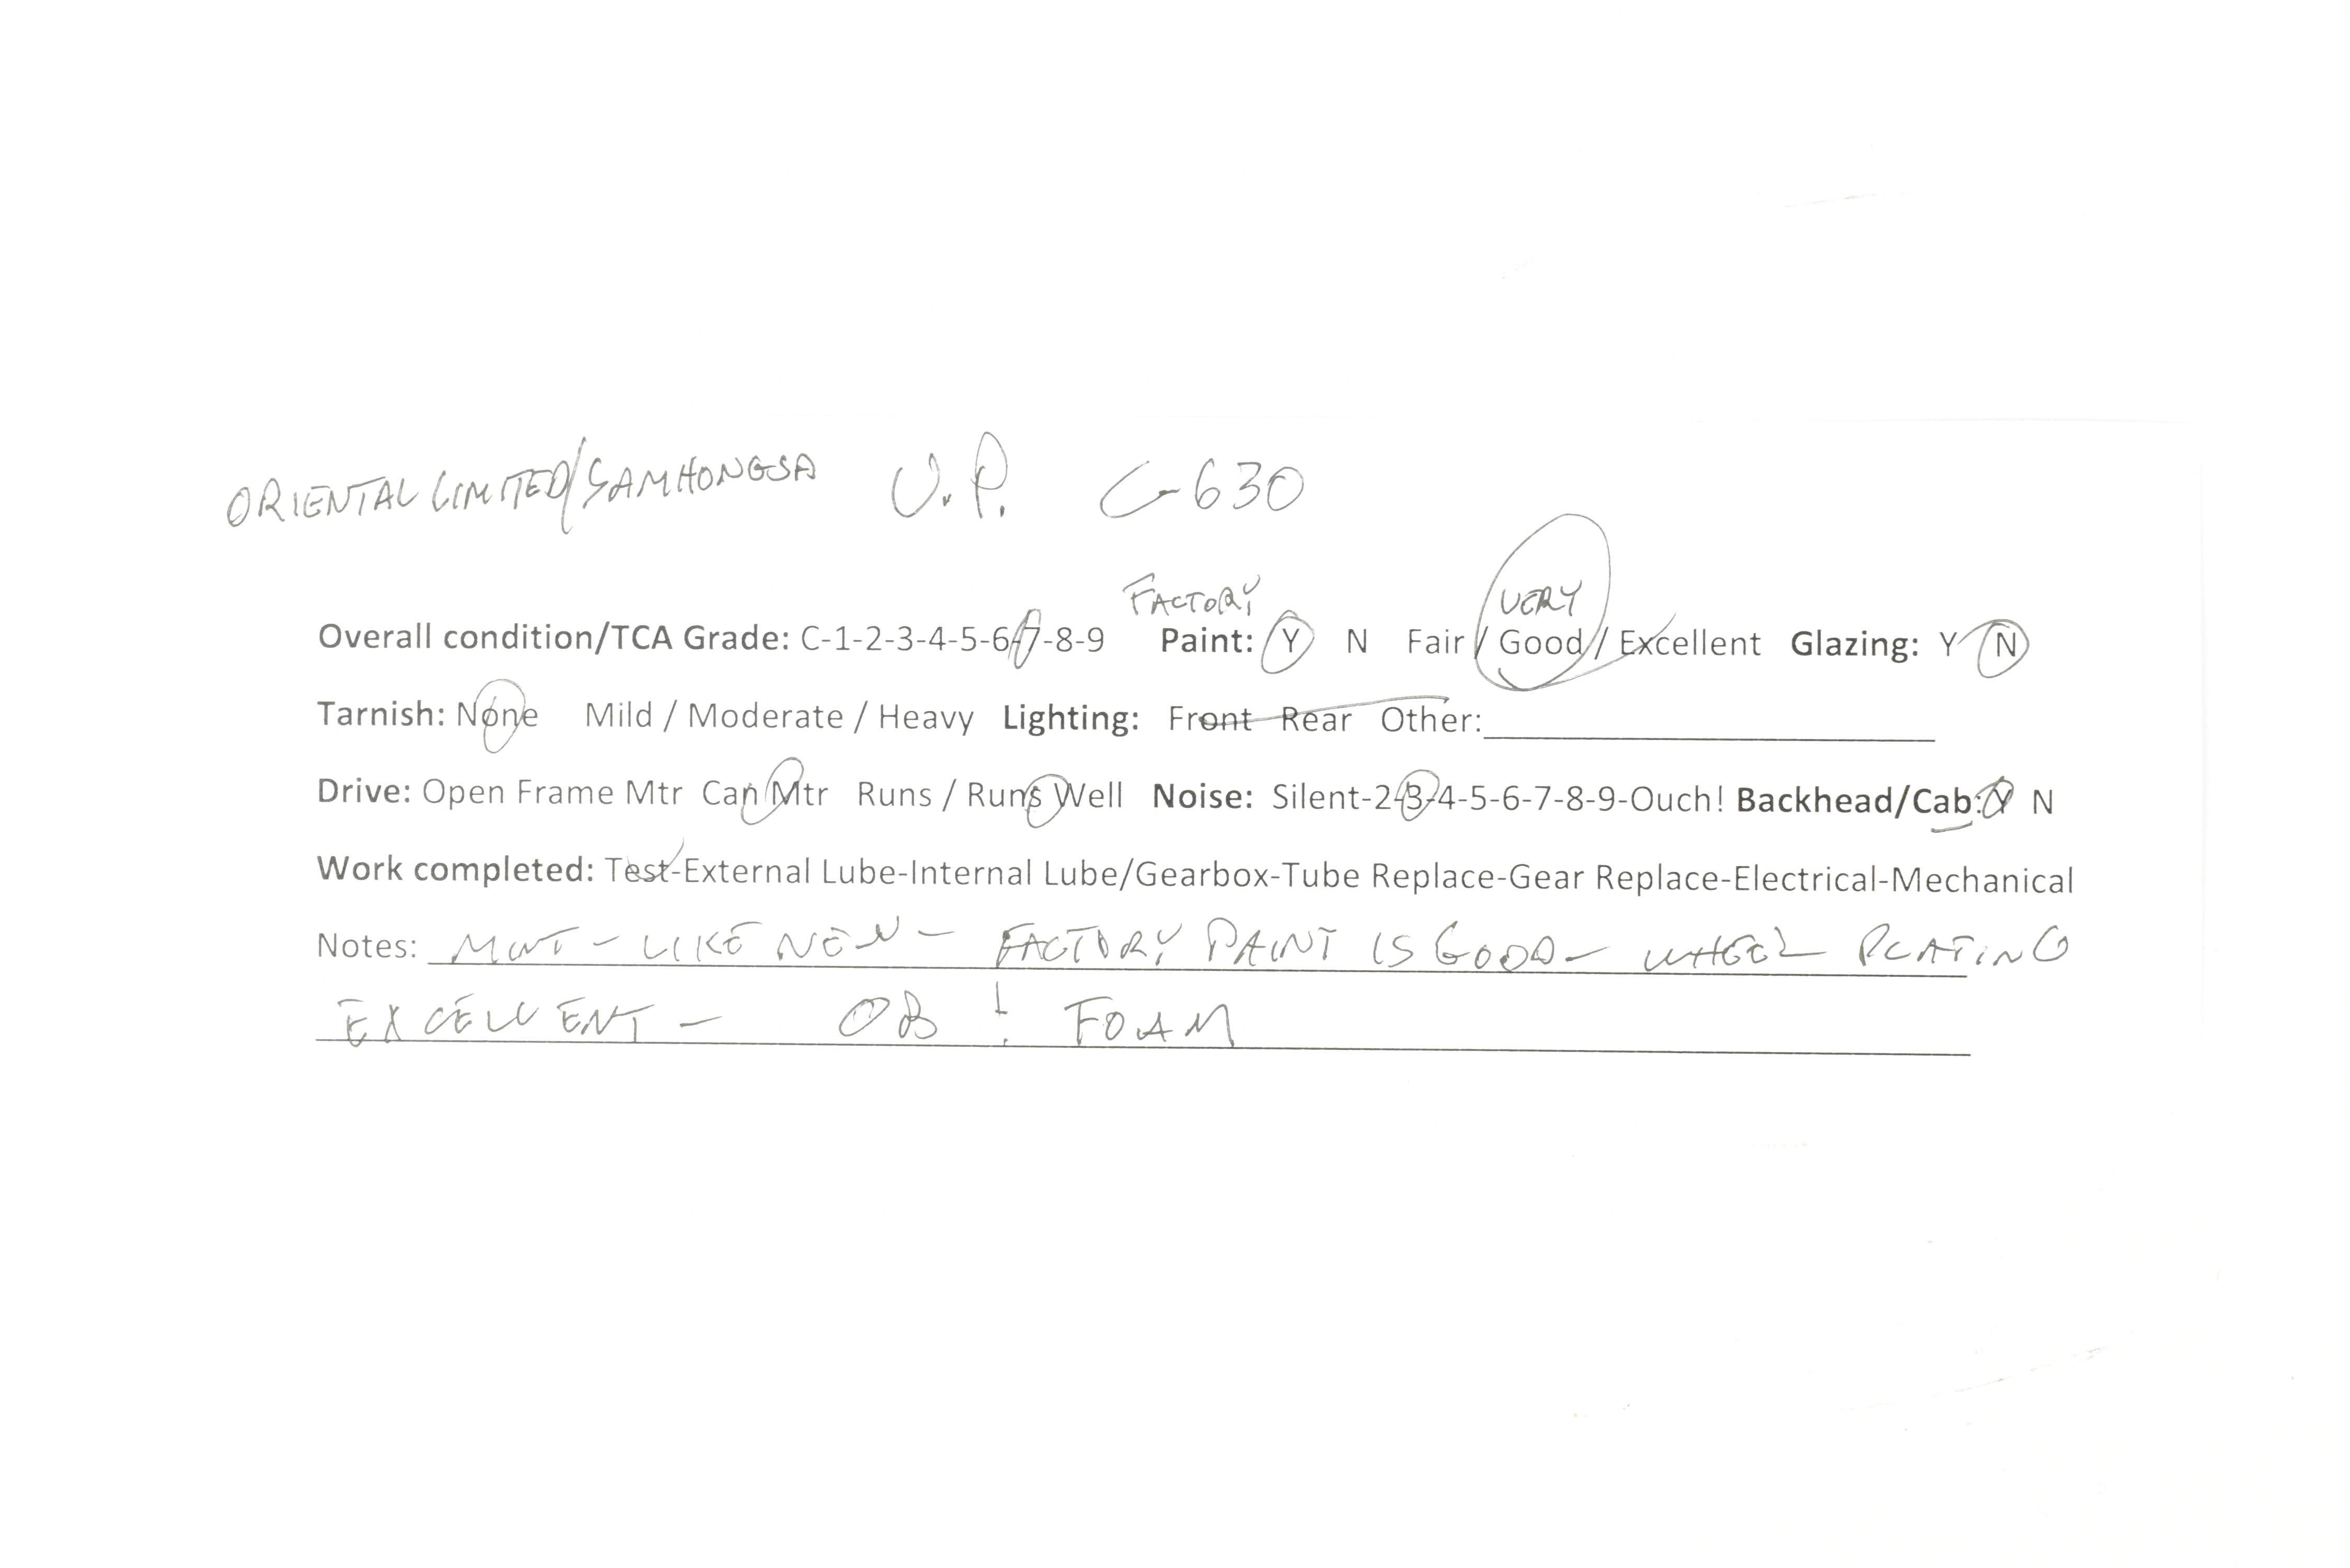 ORIENTAL LIMITED/SAMHONGSA U.P. C-630
FACTORY VERY
Overall condition/TCA Grade: C-1-2-3-4-5-6-7-8-9 Paint: Y N Fair / Good / Excellent Glazing: Y N
Tarnish: None Mild / Moderate / Heavy Lighting: Front Rear Other:
Drive: Open Frame Mtr Can Mtr Runs / Runs Well Noise: Silent-2-3-4-5-6-7-8-9-Ouch! Backhead/Cab: Y N
Work completed: Test-External Lube-Internal Lube/Gearbox-Tube Replace-Gear Replace-Electrical-Mechanical
Notes: MINT - LIKE NEW - FACTORY PAINT IS GOOD - WHEEL PLATING
EXCELLENT - OB ! FOAM